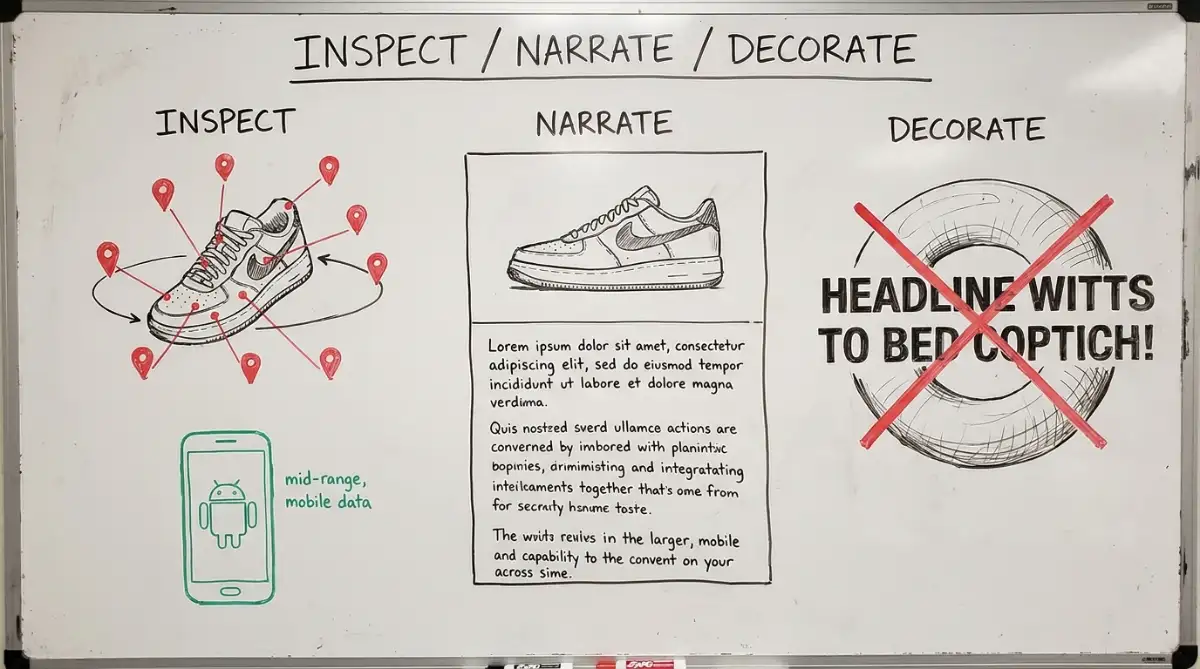 INSPECT / NARRATE / DECORATE
INSPECT
NARRATE
DECORATE
HEADLINE WITTS
TO BED COPTICH!
Lorem ipsum dolor sit amet, consectetur
adipiscing elit, sed do eiusmod tempor
incididunt ut labore et dolore magna
verdima.
Quis nostzed sverd ullamce actions are
converned by imbored with
and integratating
together that's ome from
for toste.
The in the larger, mobile
and capability to the convent on your
across sime.
mid-range,
mobile data
EXPO